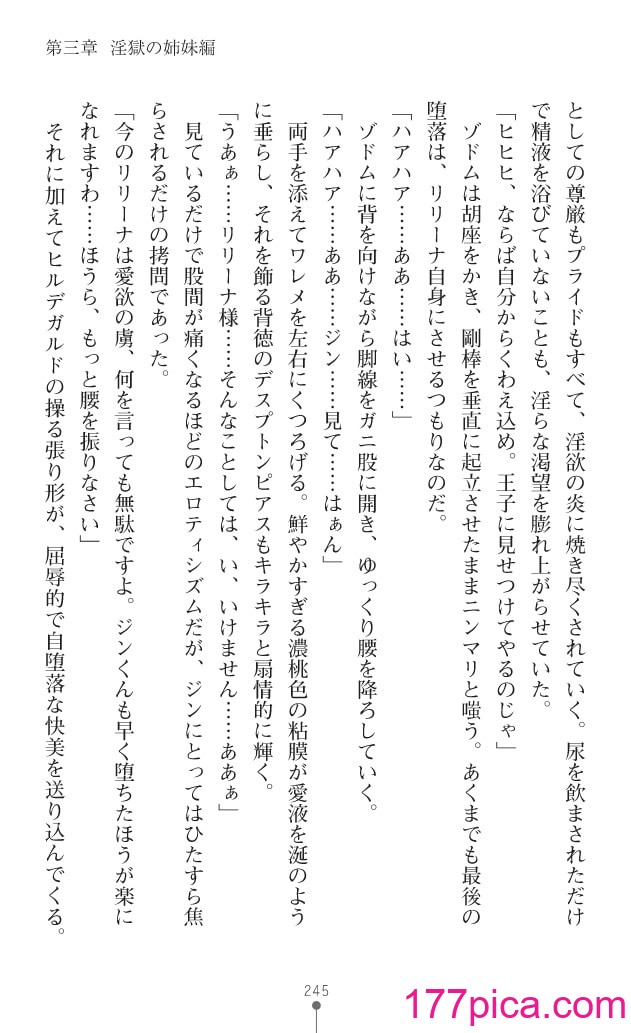 第三章　淫獄の姉妹編
としての尊厳もプライドもすべて、淫欲の炎に焼き尽くされていく。尿を飲まされただけ
で精液を浴びていないことも、淫らな渇望を膨れ上がらせていた。
「ヒヒヒ、ならば自分からくわえ込め。王子に見せつけてやるのじゃ」
ゾドムは胡座をかき、剛棒を垂直に起立させたままニンマリと嗤う。あくまでも最後の
堕落は、リリーナ自身にさせるつもりなのだ。
「ハアハア……ああ……はい……」
ゾドムに背を向けながら脚線をガニ股に開き、ゆっくり腰を降ろしていく。
「ハアハア……ああ……ジン……見て……はぁん」
両手を添えてワレメを左右にくつろげる。鮮やかすぎる濃桃色の粘膜が愛液を涎のよう
に垂らし、それを飾る背徳のデスプトンピアスもキラキラと扇情的に輝く。
「うあぁ……リリーナ様……そんなことしては、い、いけません……ああぁ」
見ているだけで股間が痛くなるほどのエロティシズムだが、ジンにとってはひたすら焦
らされるだけの拷問であった。
「今のリリーナは愛欲の虜、何を言っても無駄ですよ。ジンくんも早く堕ちたほうが楽に
なれますわ……ほうら、もっと腰を振りなさい」
それに加えてヒルデガルドの操る張り形が、屈辱的で自堕落な快美を送り込んでくる。
245
177pica.com